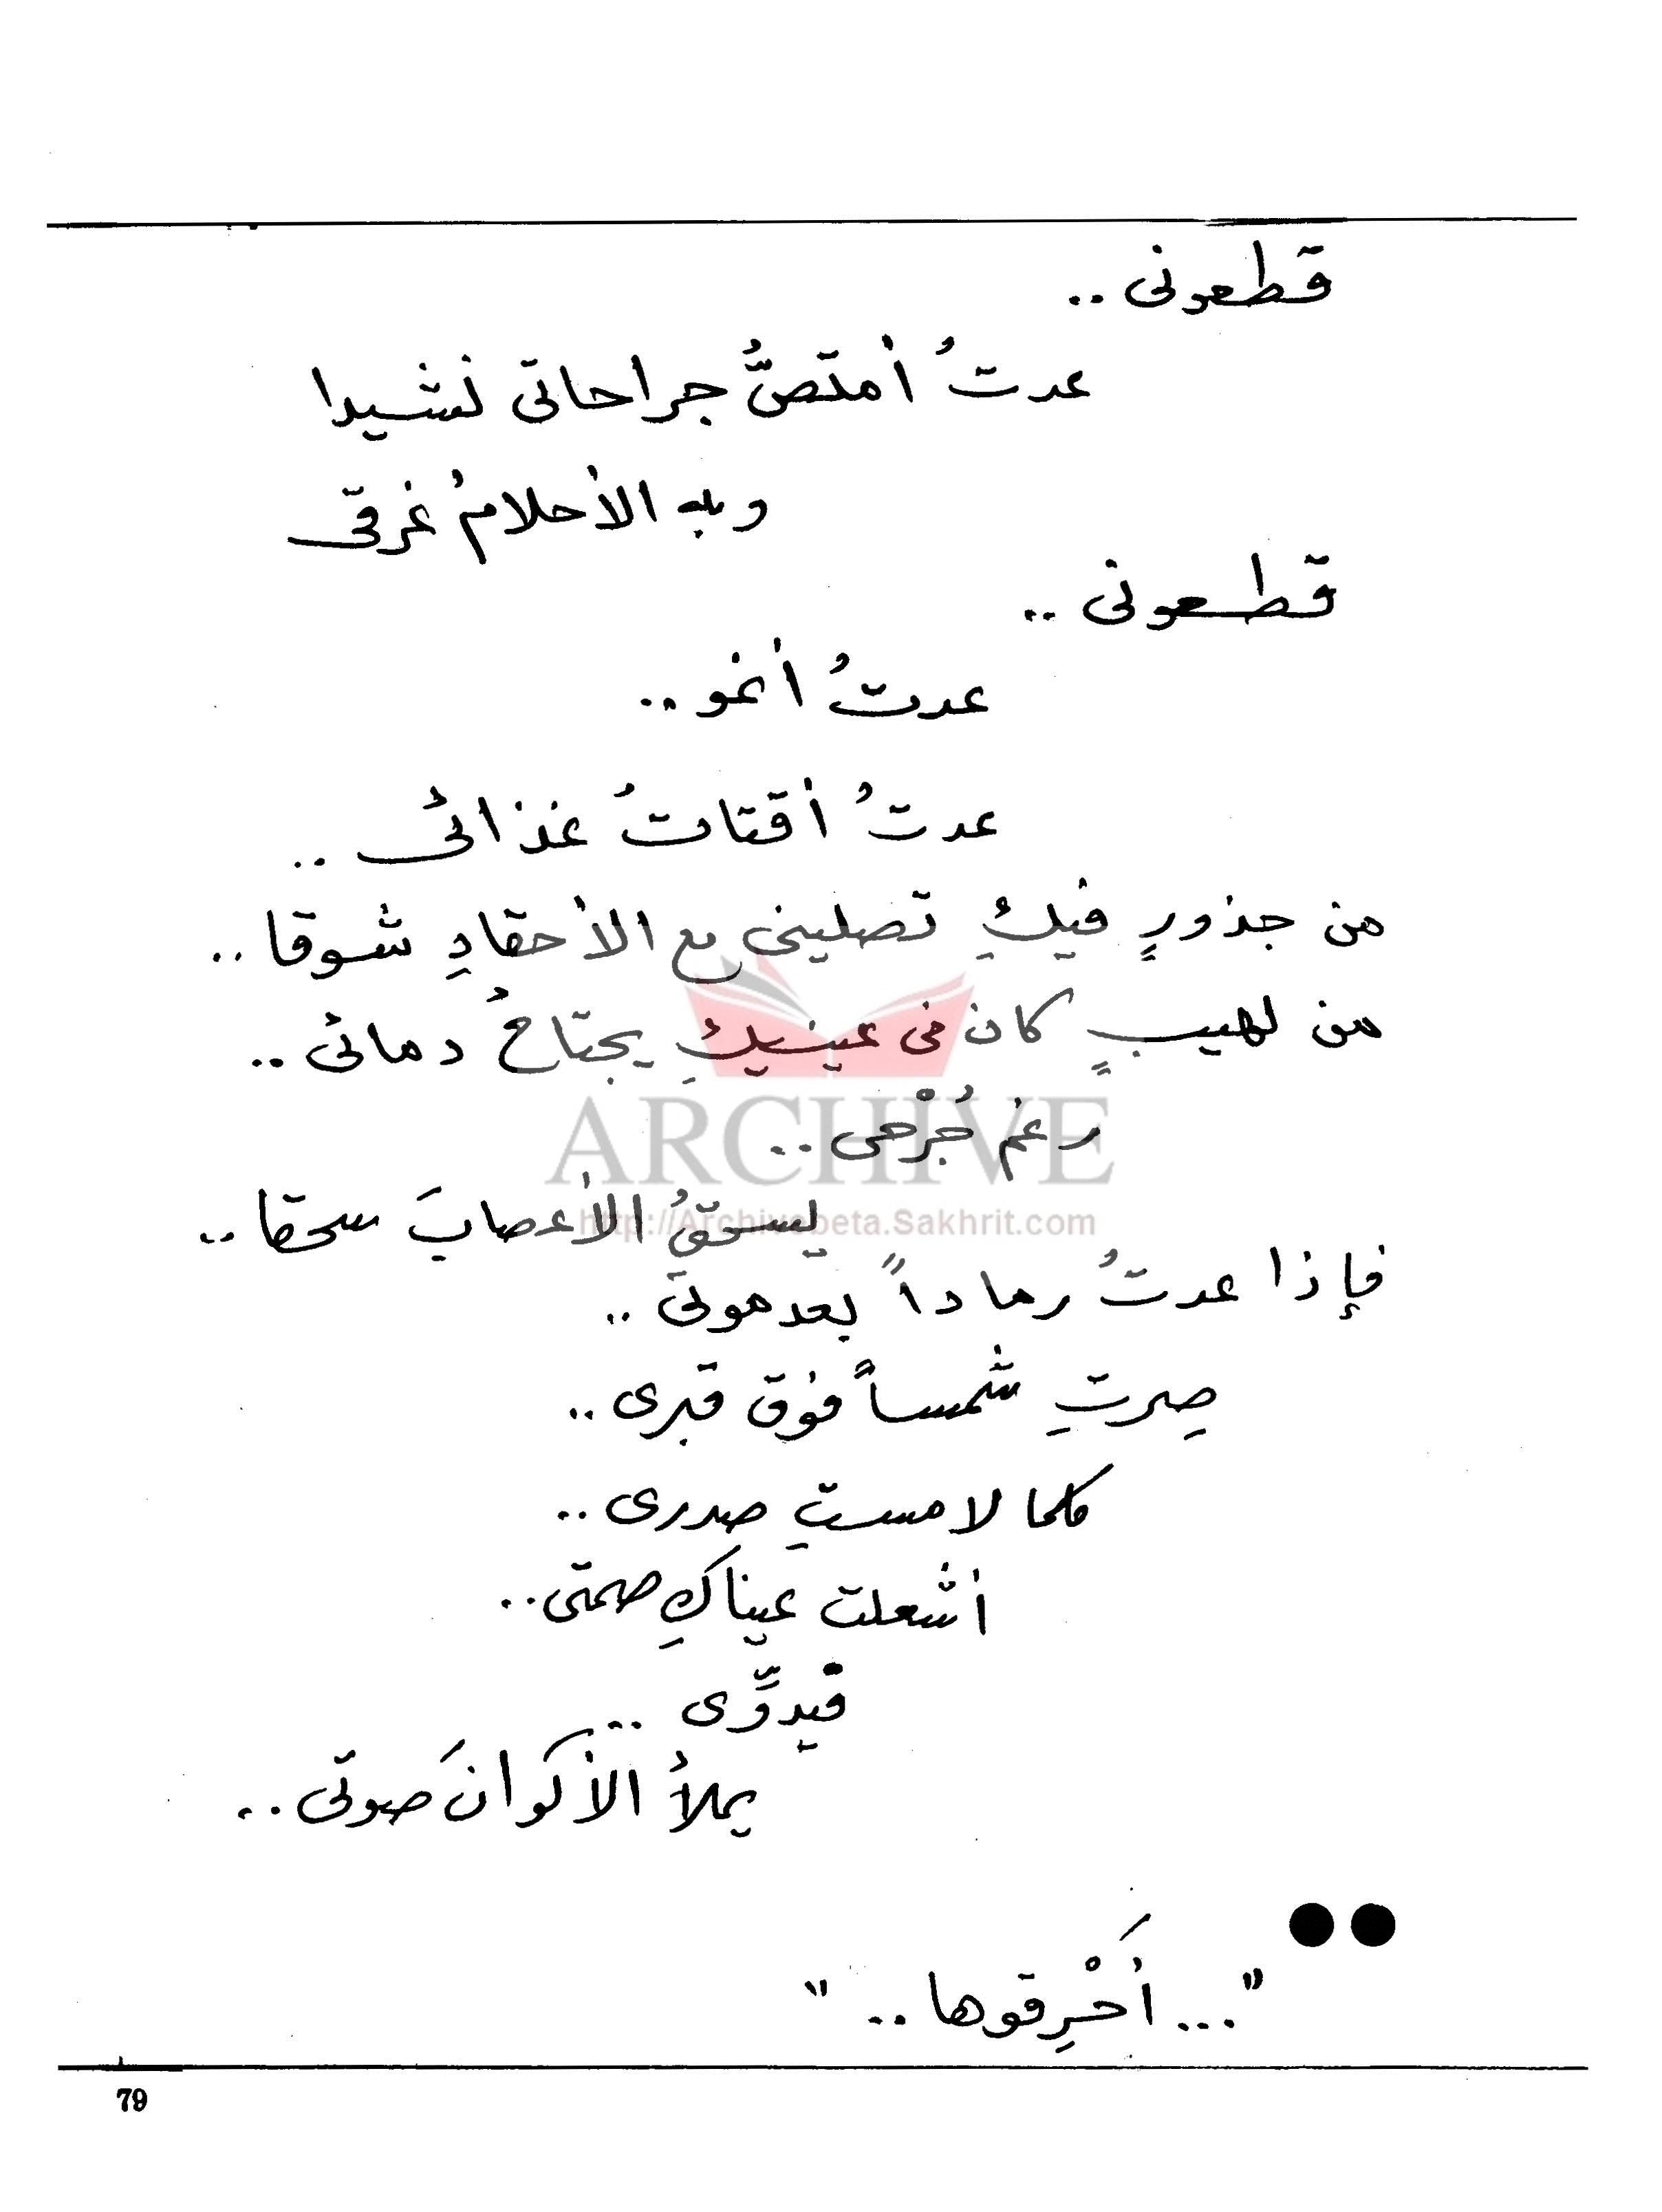 قطعونى ..
عدتُ أمتصُّ جراحاتى نشيدا
وبه الأحلامُ غرقى
قطعونى ..
عدتُ أنمو ..
عدتُ أقتاتُ غذائى ..
من جذورٍ فيكِ تصلينى مع الأحقادِ شوقا ..
من لهيبٍ كان فى عينيكِ يجتاحُ دمائى ..
رغم جُرْحى ..
يسحقُ الأعصابَ سحقا ..
فإذا عدتُ رماداً بعد موتى ..
صِرتِ شمساً فوق قبرى ..
كلما لامستِ صدرى ..
أشعلت عيناكِ صمتى ..
فيدوِّى ..
يملأُ الأكوانَ صوتى ..
●●
"... أَحْرِقوها .. "
79
ARCHIVE
http://Archivebeta.Sakhrit.com